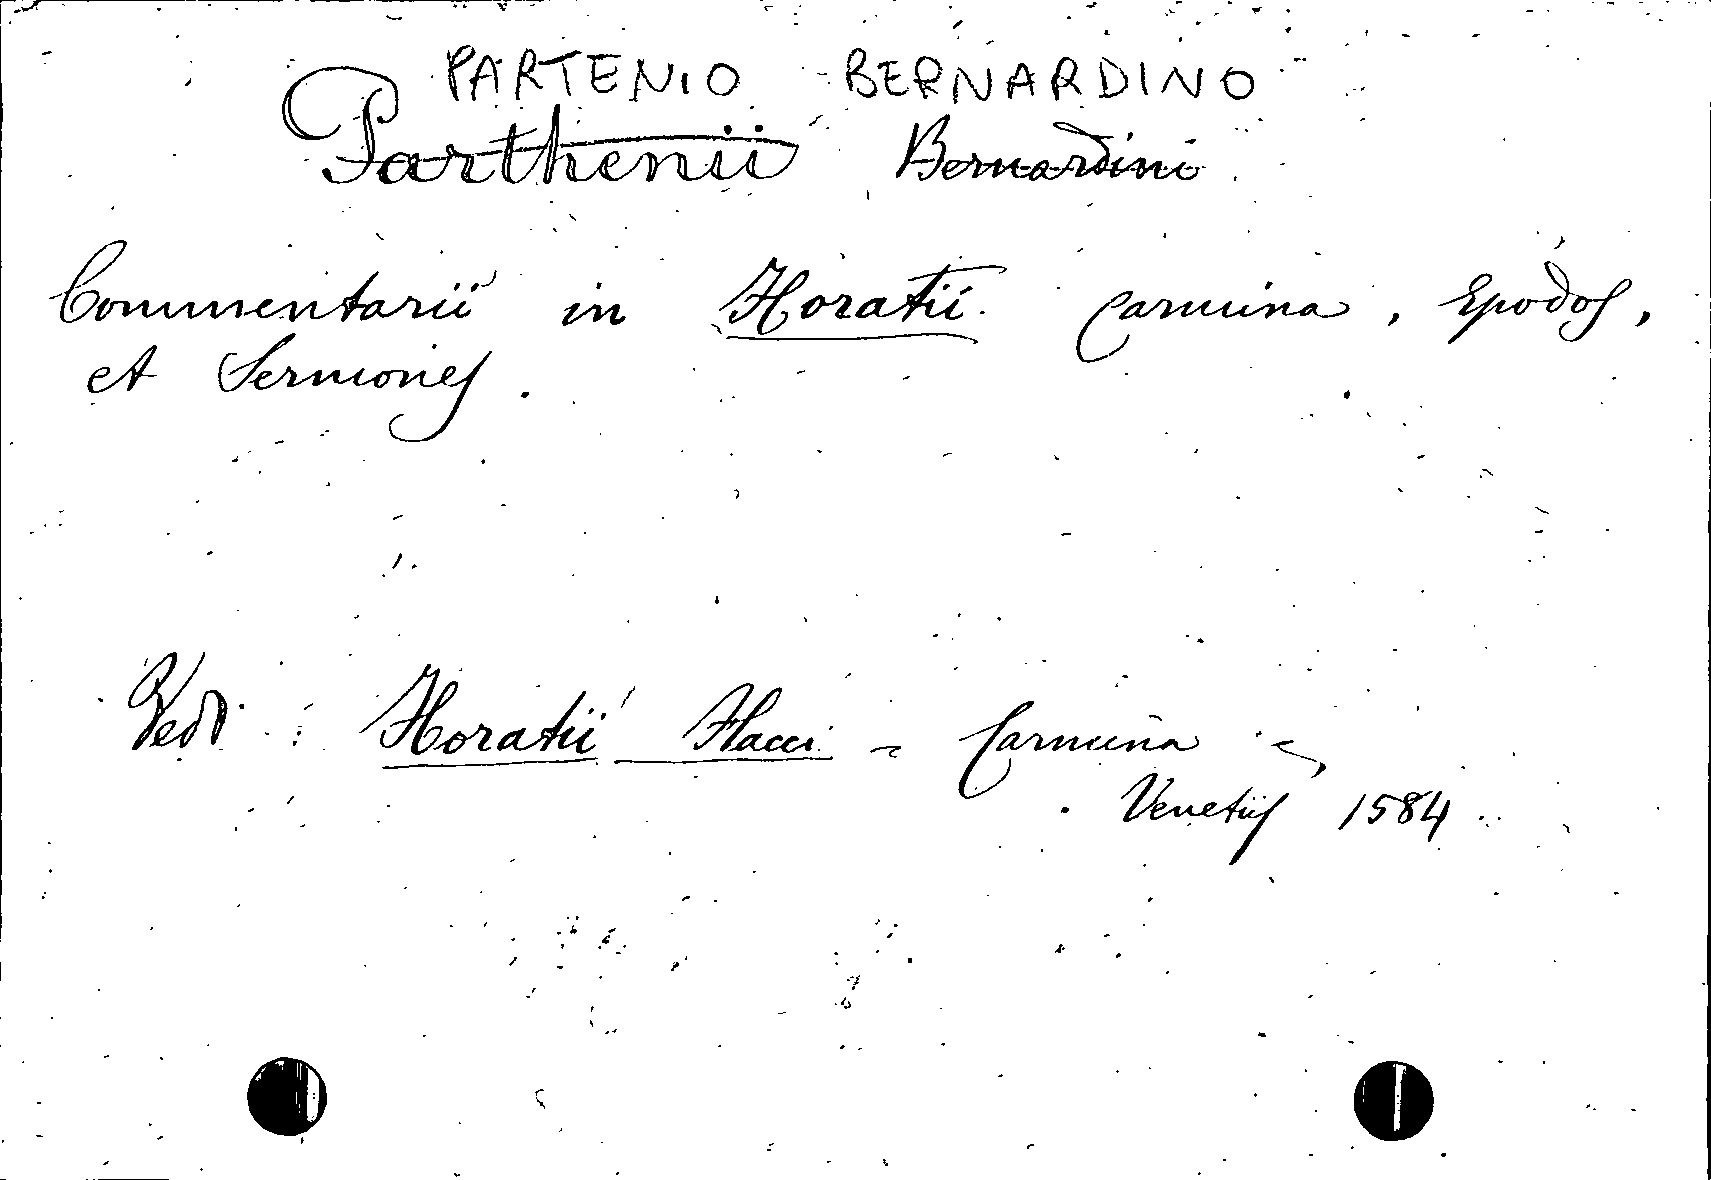 PARTENIO BERNARDINO
Parthenii Bernardini
Commentarii in Horatii Carmina, Epodos,
et Sermones.
Vedi: Horatii Flacci = Carmina =,
Venetiis 1584